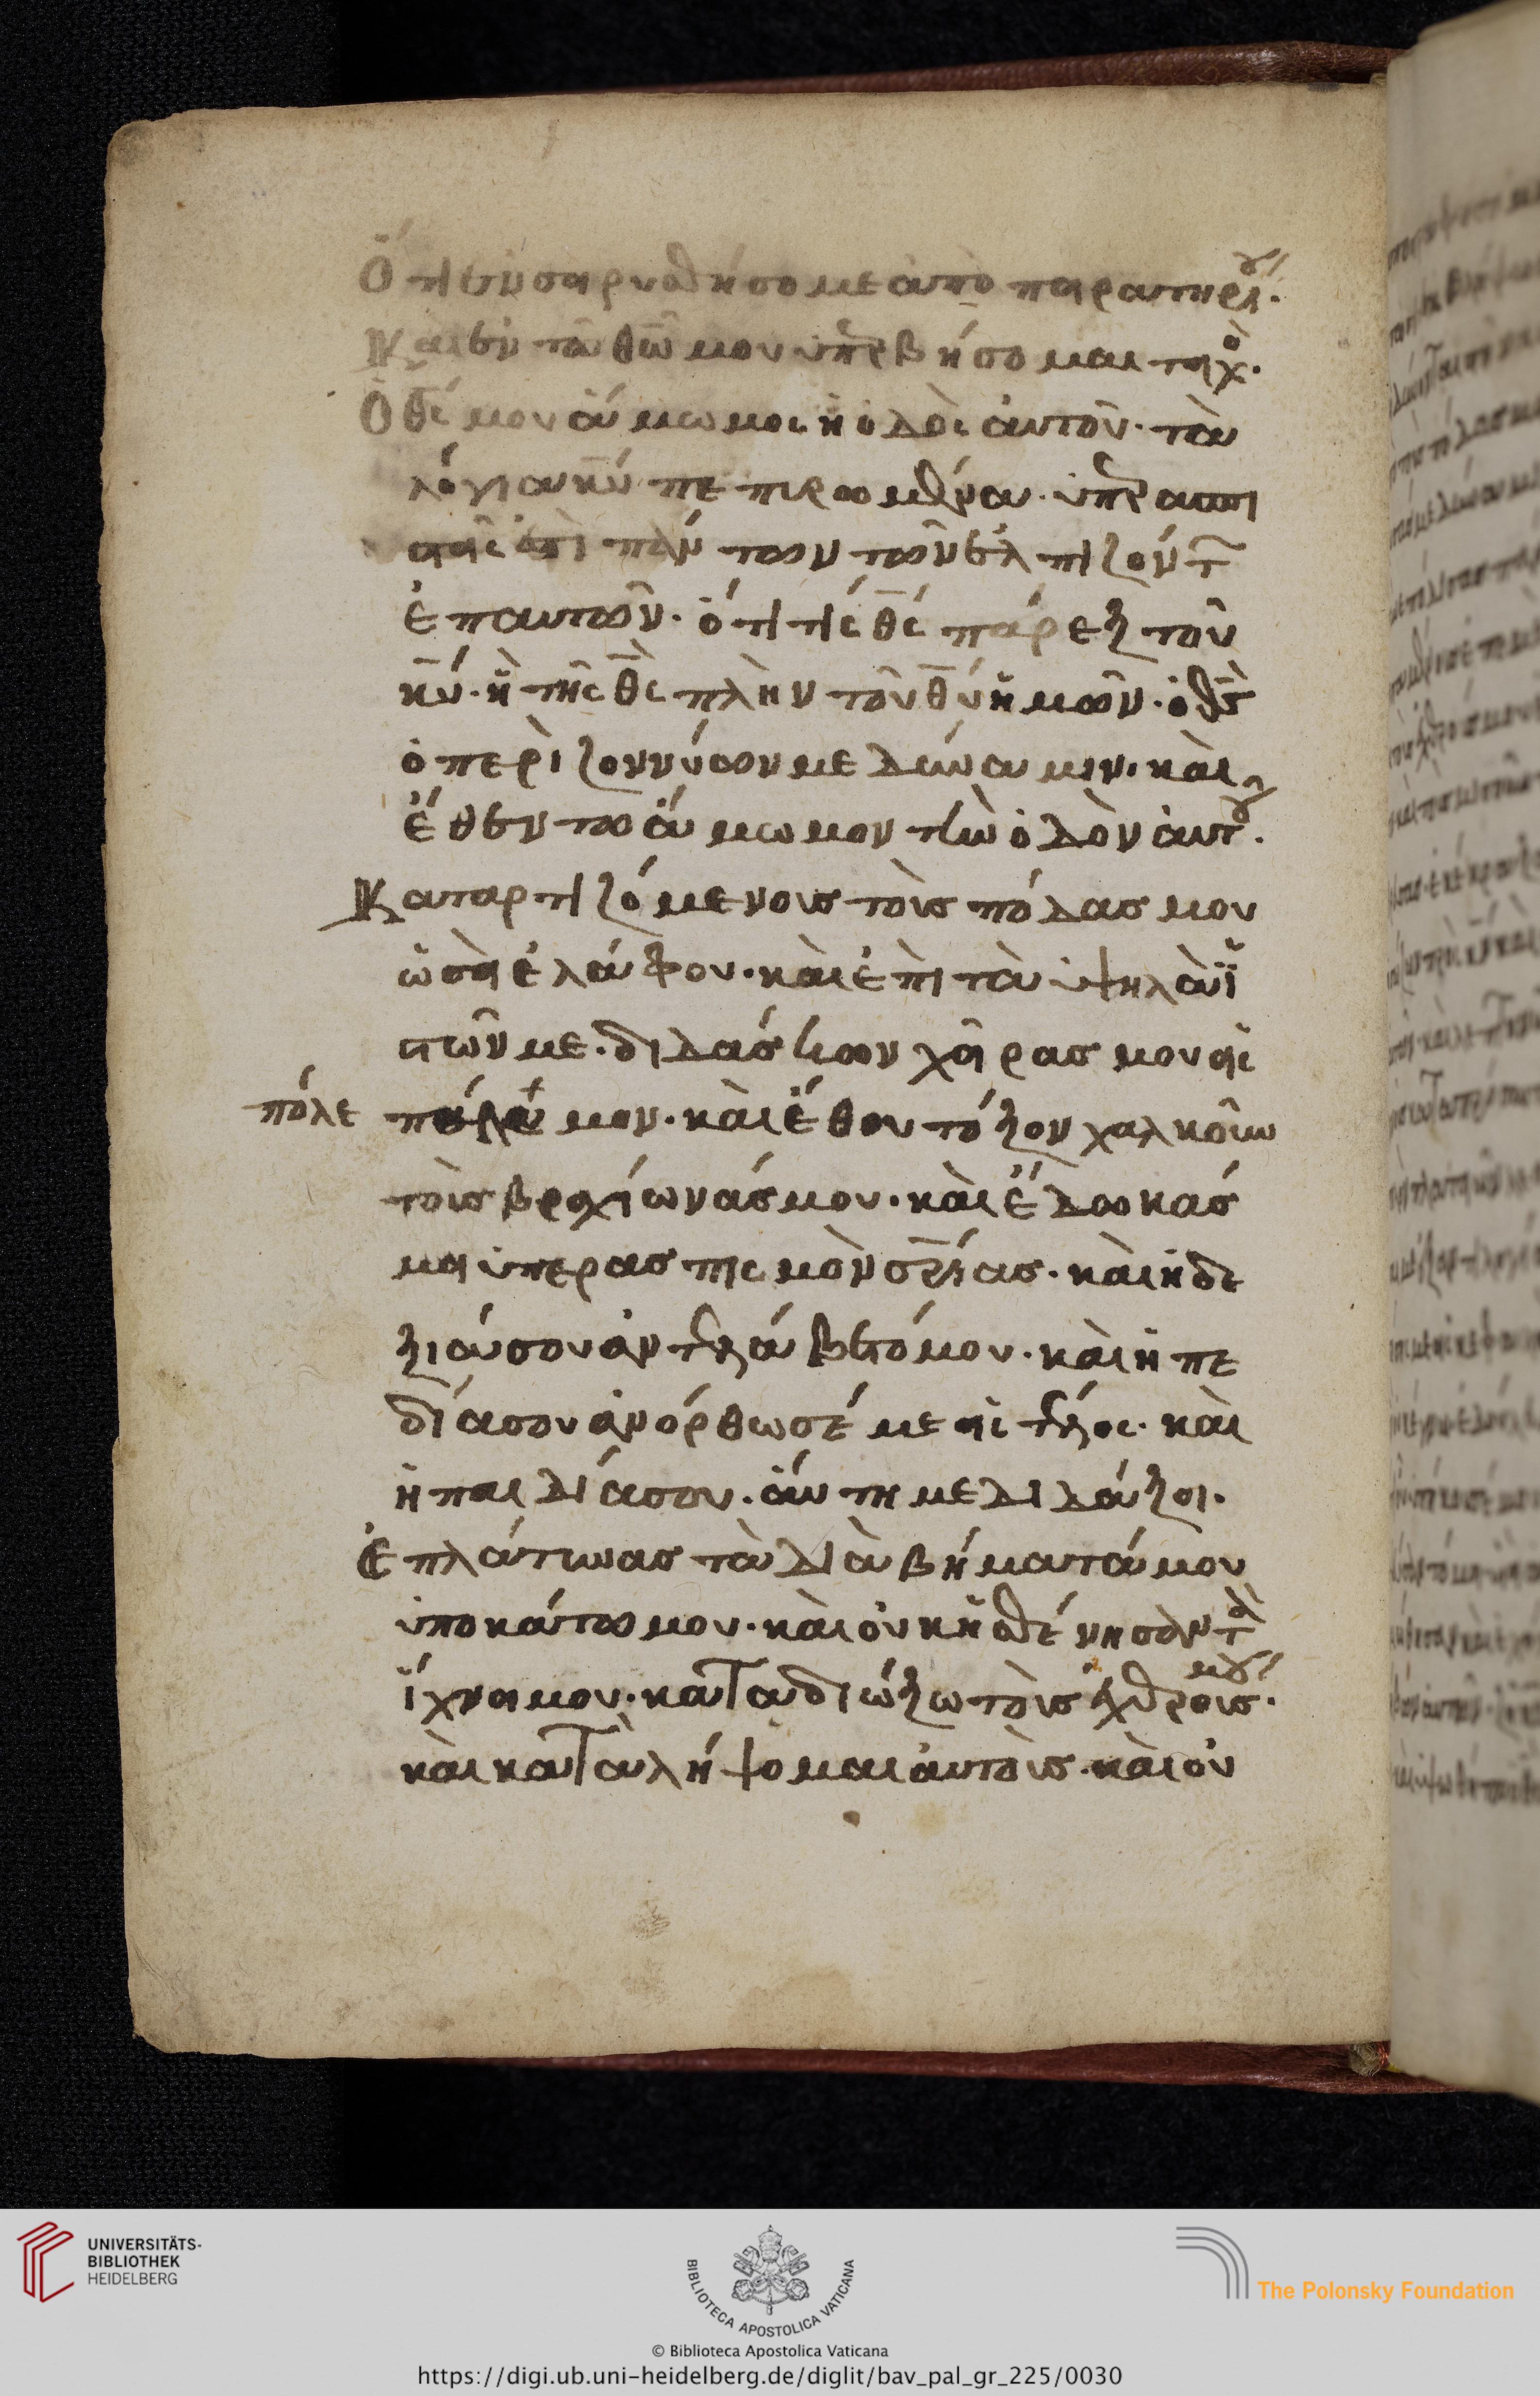 Ὅτι ἐν σοὶ ρυσθήσομε ἀπὸ πειρατηρίου.
Καὶ ἐν τῶ θω̅ μου ὑπερβήσομαι τεῖχο.
Ὁ θς̅ μου ἄμωμος ἡ ὁδὸς ἀυτοῦ· τὰ
λόγια κυ̅ πεπιρωμένα· ὑπερασπι
στῆς ἐστὶ πάντων τῶν ἐλπιζόντ
ἐπαυτῶν· ὅτι τίς θς̅ πάρεξ τοῦ
κυ̅· ἢ τῆς θς̅ πλὴν τοῦ θυ̅ ἡμῶν· ὁ θς̅
ὁ περὶζοννύων με δύναμιν· καὶ
ἔθεντο ἄμωμον τὴν ὁδὸν ἀυτου.
Καταρτιζόμενους τοὺς πόδας μου
ὡσεὶ ἐλάφου· καὶ ἐπὶ τὰ ὑψηλὰ ἵ
στῶν με· διδάσκων χεῖρας μου εἰς
πόλε πόλαιμον· καὶ ἔθου τόξον χαλκοῦν
τοὺς βραχίωνάς μου· καὶ ἔδωκάς
μοι ὑπερασπισμὸν σρίας· καὶ ἡ δε
ξιάσου ἀντελάβετόμου· καὶ ἡ πε
δίασου ἀνόρθωσέ με εἰς τέλος· καὶ
ἡ παιδίασου· ἄυτη με διδάξει.
Ἐπλάτυνας τὰ διὰβήματάμου
ὑποκάτωμου· καὶ οὐκ ἠσθένησὰν τὰ
ἴχνειμου· καταδιώξω τοὺς ἐχθρούς μου.
καὶ καταλήψομαι ἀυτοὺς· καὶ οὐ
UNIVERSITÄTS-
BIBLIOTHEK
HEIDELBERG
BIBLIOTECA APOSTOLICA VATICANA
The Polonsky Foundation
© Biblioteca Apostolica Vaticana
https://digi.ub.uni-heidelberg.de/diglit/bav_pal_gr_225/0030